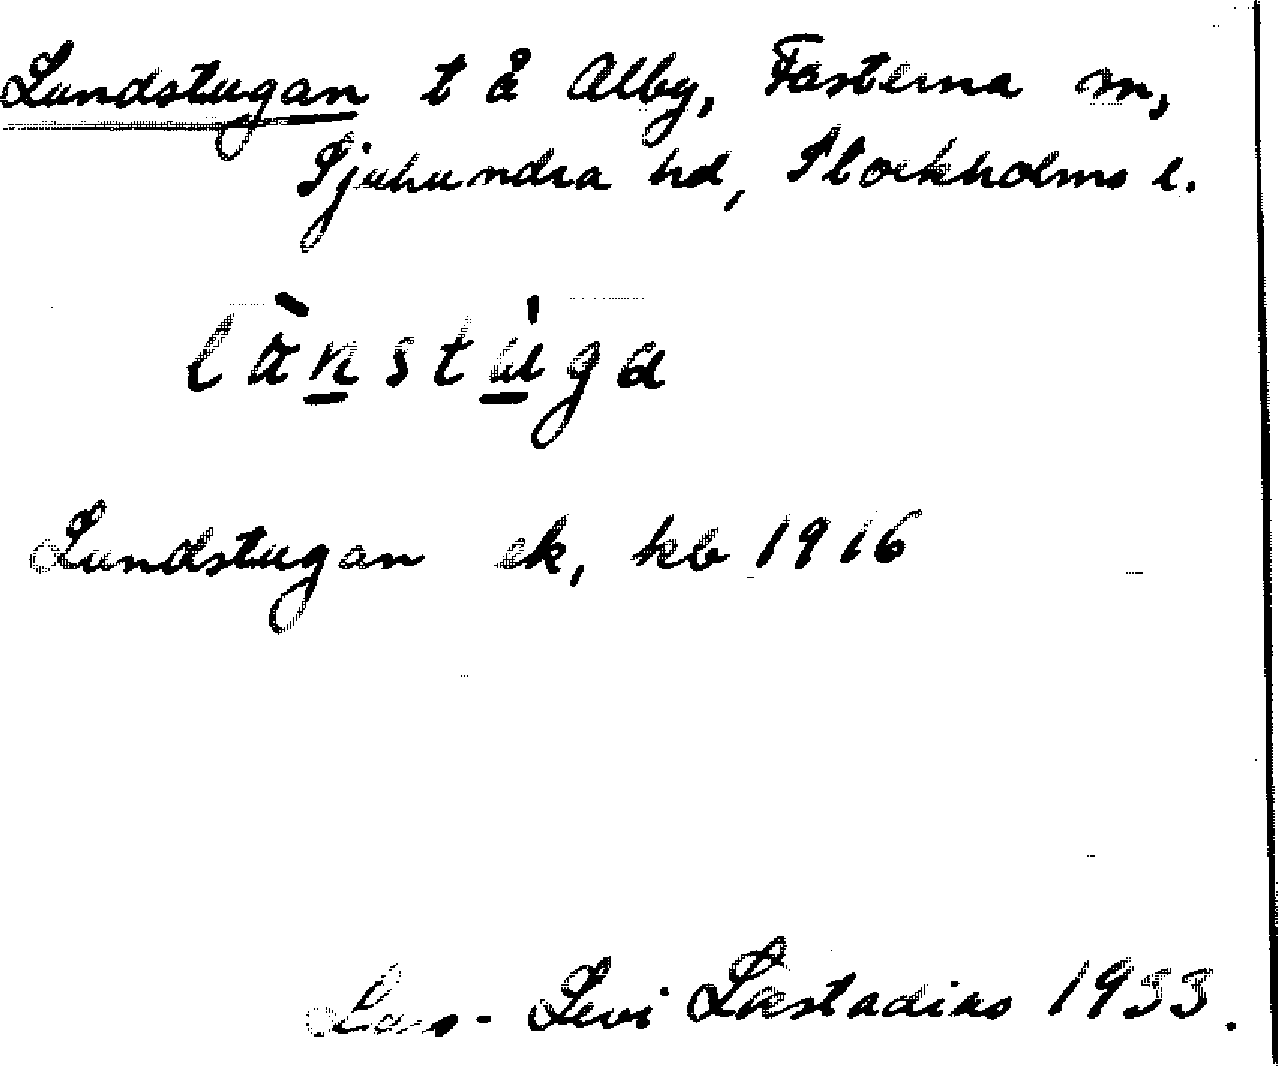 Lundstugan t å Alby, Fasterna sn,
Sjuhundra hd, Stockholms l.
lànstu̇ga
Lundstugan ek, kb 1916
Lars-Levi Læstadius 1953.